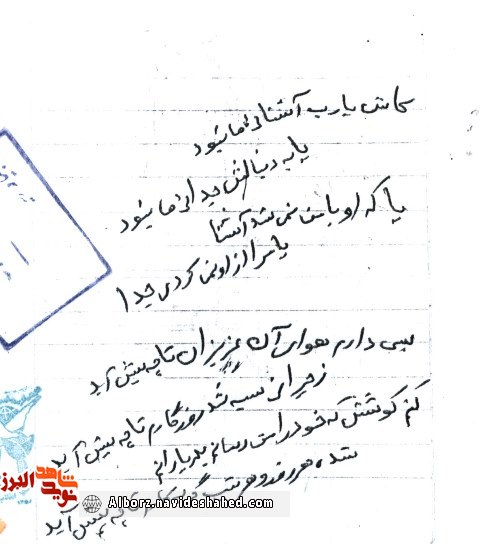 کاش یا رب آشنائی ها نبود
یا به دنبالش جدائی ها نبود
یا که او با من نمی شد آشنا
یا مرا از او نمی کردی جدا
بسی دارم هوای آن عزیزان تا چه پیش آید
ز هجرانش سیه شد روزگارم تا چه پیش آید
کنم کوشش که خود را رسانم بر یارانم
شده هر
تا چه پیش آید
شاهد
نوید
البرز
Alborz.navideshahed.com